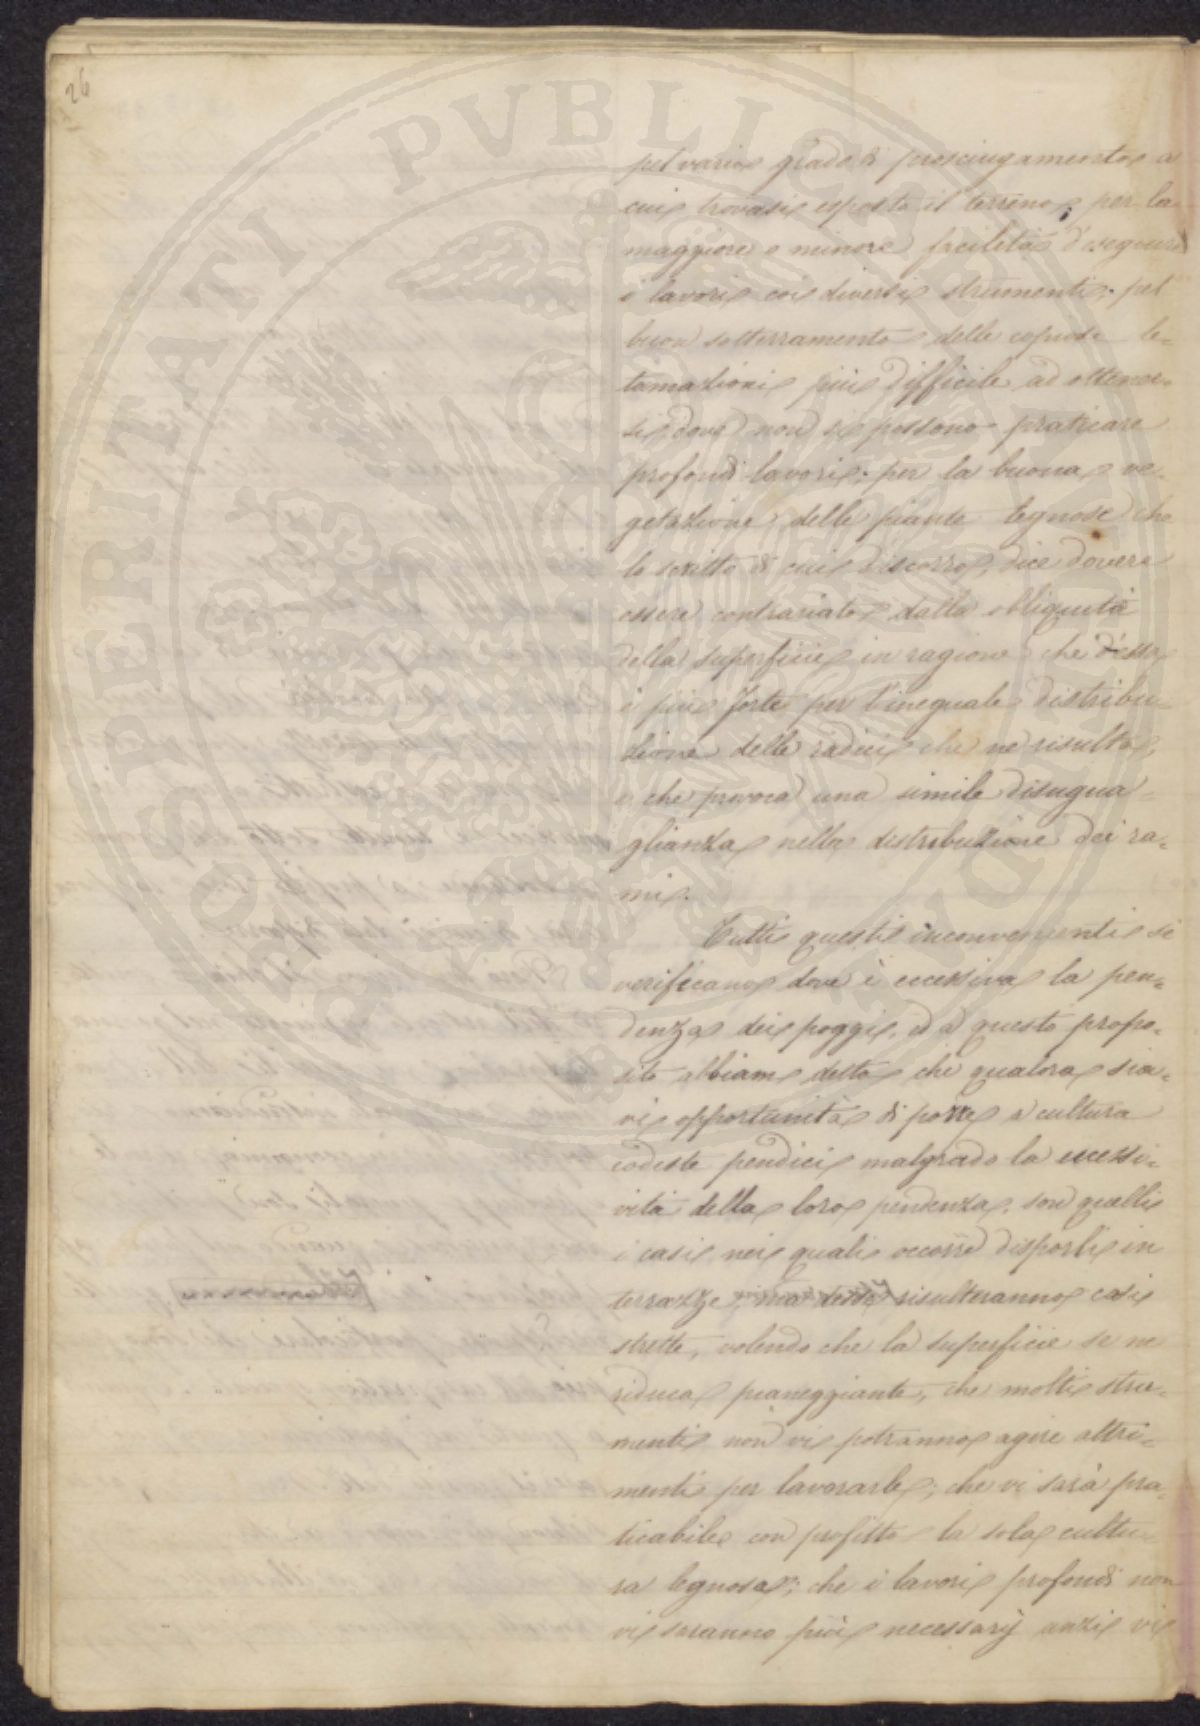 26
pel vario grado di prosciugamento a
cui trovasi esposto il terreno; per la
maggiore o minore facilità d'eseguire
i lavori coi diversi strumenti; pel
buon sotterramento delle copiose le=
tamazioni più difficile ad ottener=
si dove non si possono praticare
profondi lavori; per la buona ve=
getazione delle piante legnose che
lo scritto di cui discorro, dice dovere
essere contrariato dalla obliquità
della superficie in ragione che d'essa
è più forte per l'ineguale distribu=
zione delle radici che ne risulta,
e che provoca una simile disugua=
glianza nella distribuzione dei ra=
mi.
Tutti questi inconvenienti si
verificano dove è eccessiva la pen=
denza dei poggi, ed a questo propo=
sito abbiam detto che qualora sia=
vi opportunità di porre a cultura
codeste pendici malgrado la eccessi=
vità della loro pendenza, son quelli
i casi nei quali occorre disporli in
terrazze; ma desse risulteranno così
strette, volendo che la superficie se ne
riduca pianeggiante, che molti stru=
menti non vi potranno agire altri=
menti per lavorarle; che vi sarà pra=
ticabile con profitto la sola cultu=
ra legnosa; che i lavori profondi non
vi saranno più necessarj anzi vi
PROSPERITATI PUBLICAE